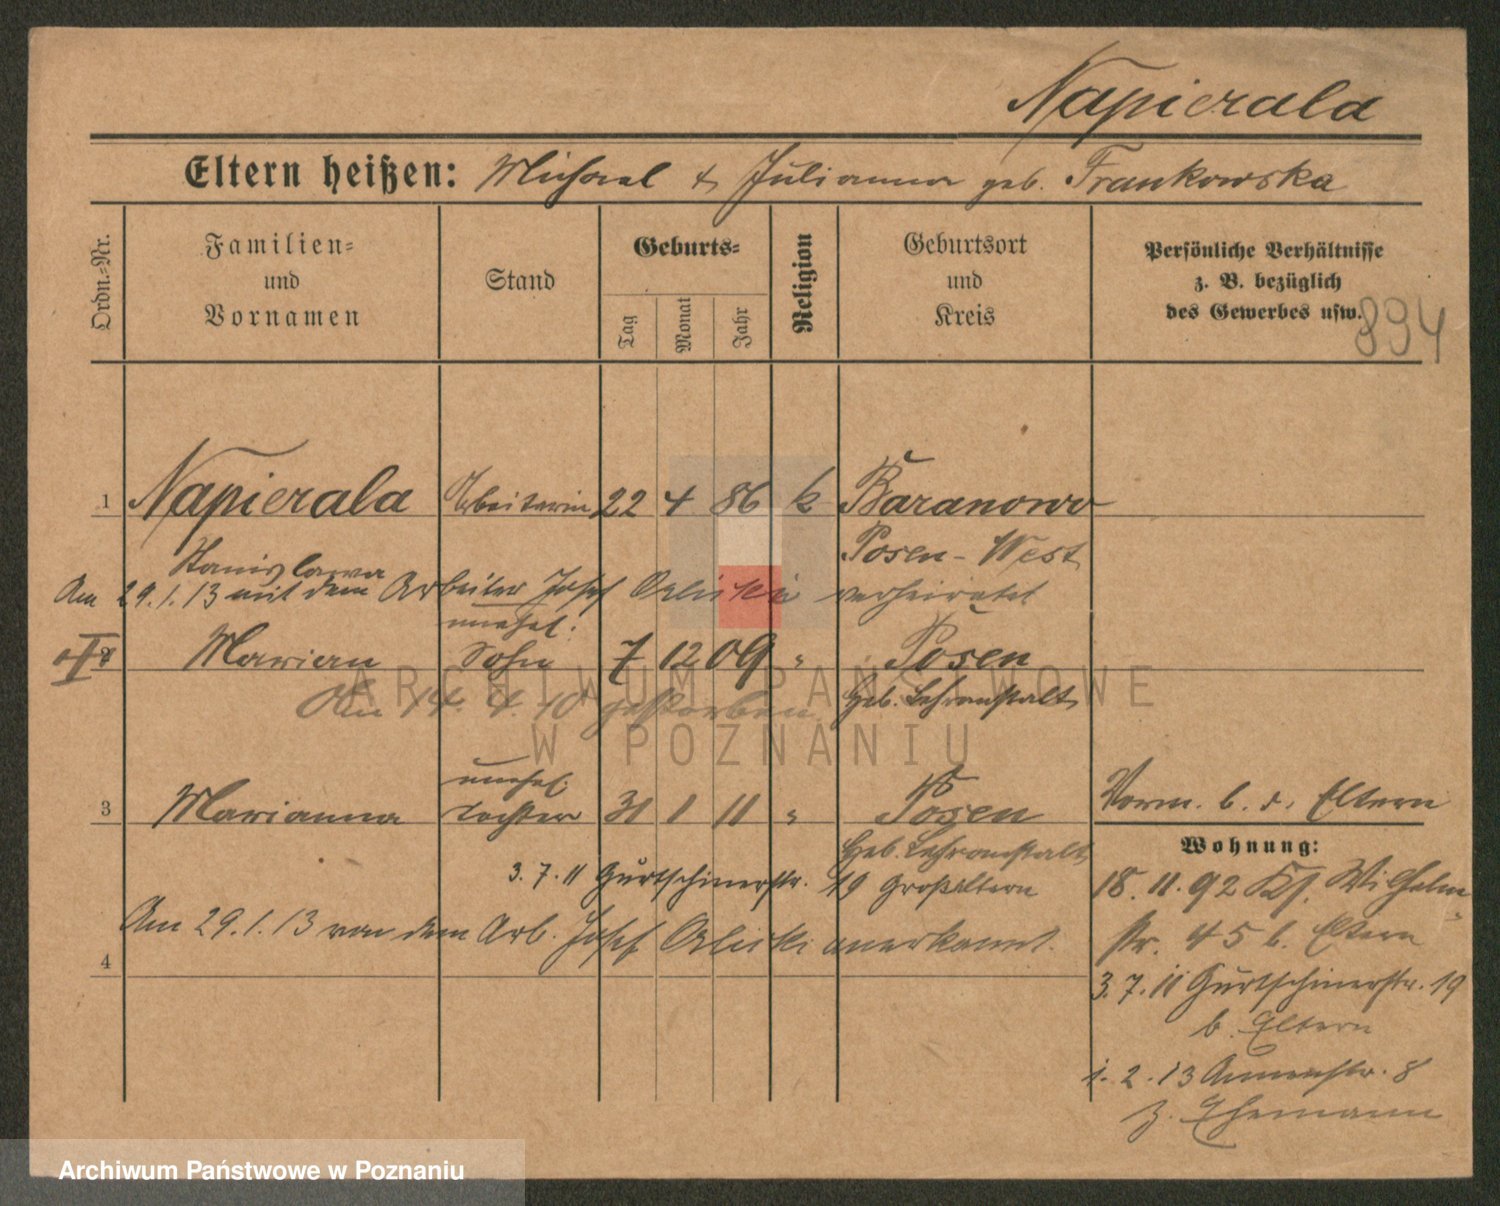 Napierala
Eltern heißen: Michael & Julianna geb. Frankowska
Ordn.-Nr.
Familien-
und
Vornamen
Stand
Geburts-
Tag
Monat
Jahr
Religion
Geburtsort
und
Kreis
Persönliche Verhältnisse
z. B. bezüglich
des Gewerbes usw.
894
1 Napierala Arbeiterin 22 4 86 k Baranowo
Stanislawa Posen-West
Am 29.1.13 mit dem Arbeiter Josef Orlicki verheiratet
unehel.
2 Marian Sohn 7 12 09 " Posen
Am 14. 4. 10 gestorben. Geb. Lehranstalt
unehel.
3 Marianna Tochter 31 1 11 " Posen
Geb. Lehranstalt
Vorm. b. d. Eltern
3. 7. 11 Gurtschinerstr. 19 Großeltern
Am 29.1.13 von dem Arb. Josef Orlicki anerkannt.
4
Wohnung:
18. 11. 92 Wilhelm-
str. 45 b. Eltern
3. 7. 11 Gurtschinerstr. 19
b. Eltern
1. 2. 13 Annenstr. 8
z. Ehemann
ARCHIWUM PAŃSTWOWE
W POZNANIU
Archiwum Państwowe w Poznaniu